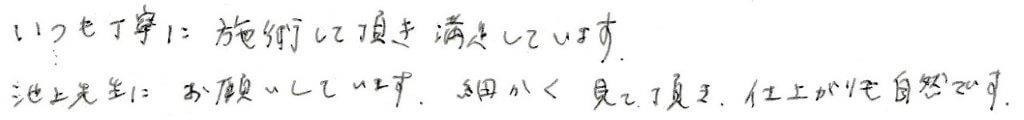 いつも丁寧に施術して頂き満足しています.
池上先生にお願いしています. 細かく見て頂き. 仕上がりも自然です.